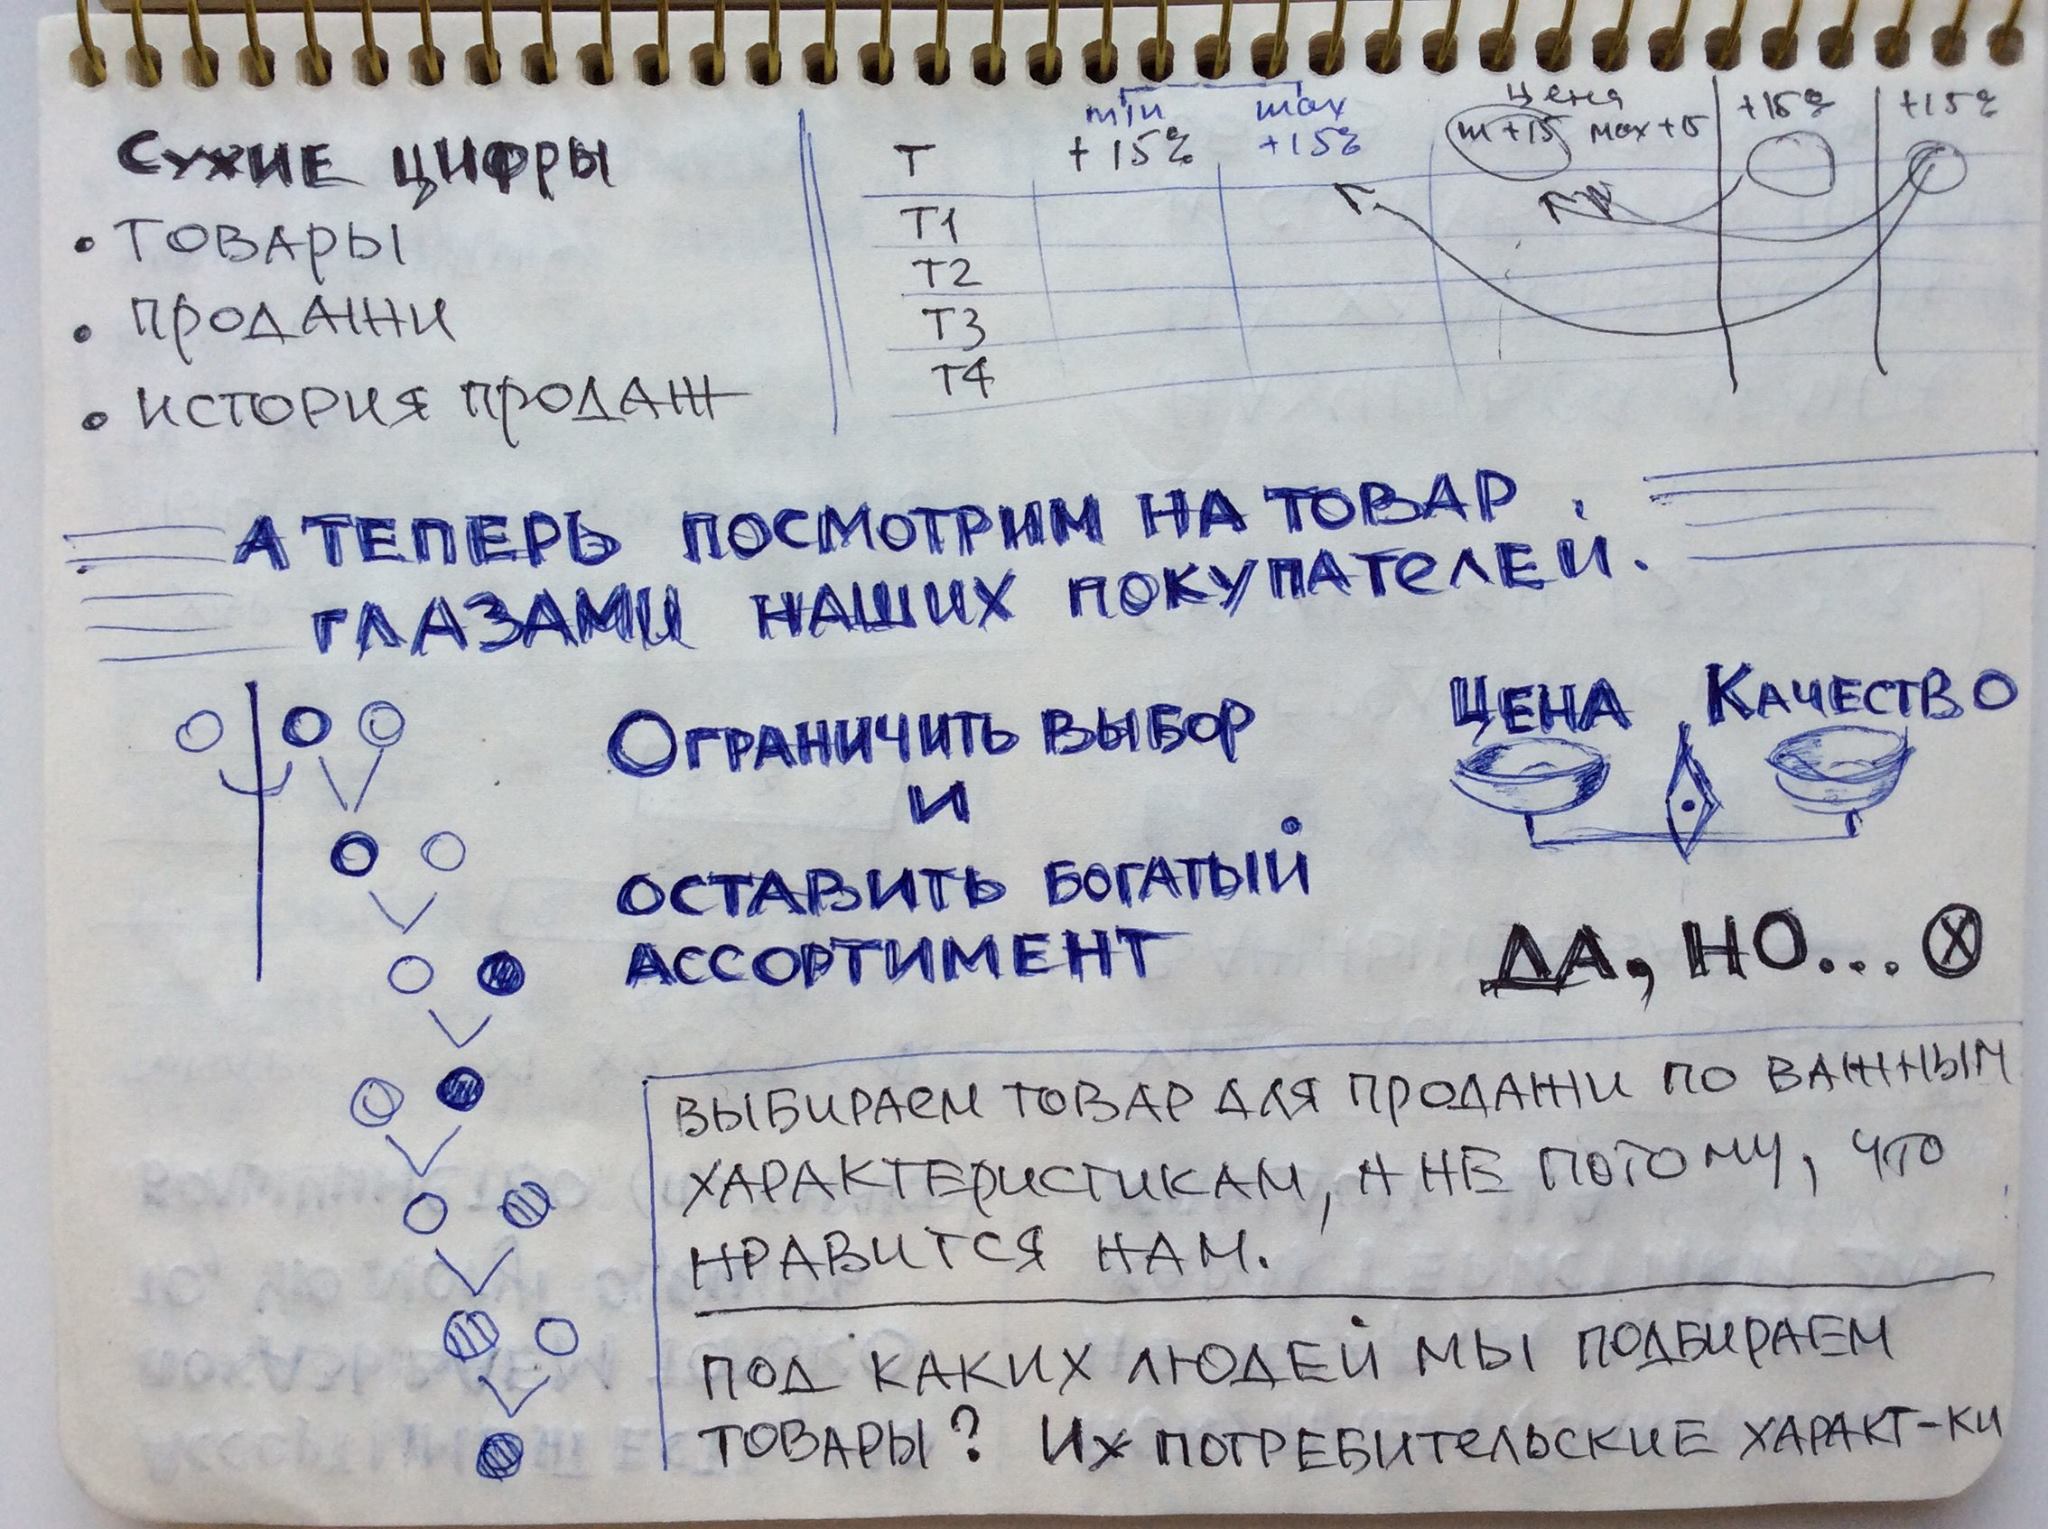 Сухие цифры
• товары
• продажи
• история продаж
min max Цена +15% +15%
Т +15% +15% m+15 max+15
Т1
Т2
Т3
Т4
А ТЕПЕРЬ ПОСМОТРИМ НА ТОВАР
ГЛАЗАМИ НАШИХ ПОКУПАТЕЛЕЙ.
ОГРАНИЧИТЬ ВЫБОР
И
ОСТАВИТЬ БОГАТЫЙ
АССОРТИМЕНТ
ЦЕНА КАЧЕСТВО
ДА, НО...
ВЫБИРАЕМ ТОВАР ДЛЯ ПРОДАЖИ ПО ВАЖНЫМ
ХАРАКТЕРИСТИКАМ, А НЕ ПОТОМУ, ЧТО
НРАВИТСЯ НАМ.
ПОД КАКИХ ЛЮДЕЙ МЫ ПОДБИРАЕМ
ТОВАРЫ? ИХ ПОТРЕБИТЕЛЬСКИЕ ХАРАКТ-КИ